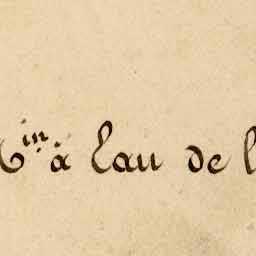 in à Lau de l